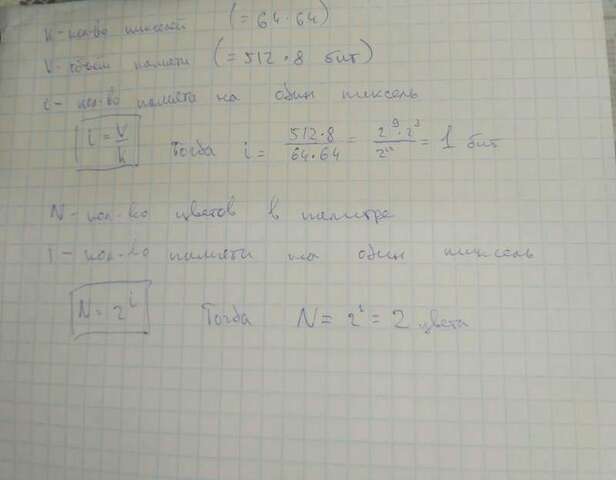 k - кол-во пикселей (= 64 · 64)
V - объем памяти (= 512 · 8 бит)
i - кол-во памяти на один пиксель
i = V/k Тогда i = 512·8/64·64 = 2^9·2^3/2^12 = 1 бит
N - кол-во цветов в палитре
i - кол-во памяти на один пиксель
N = 2^i Тогда N = 2^1 = 2 цвета